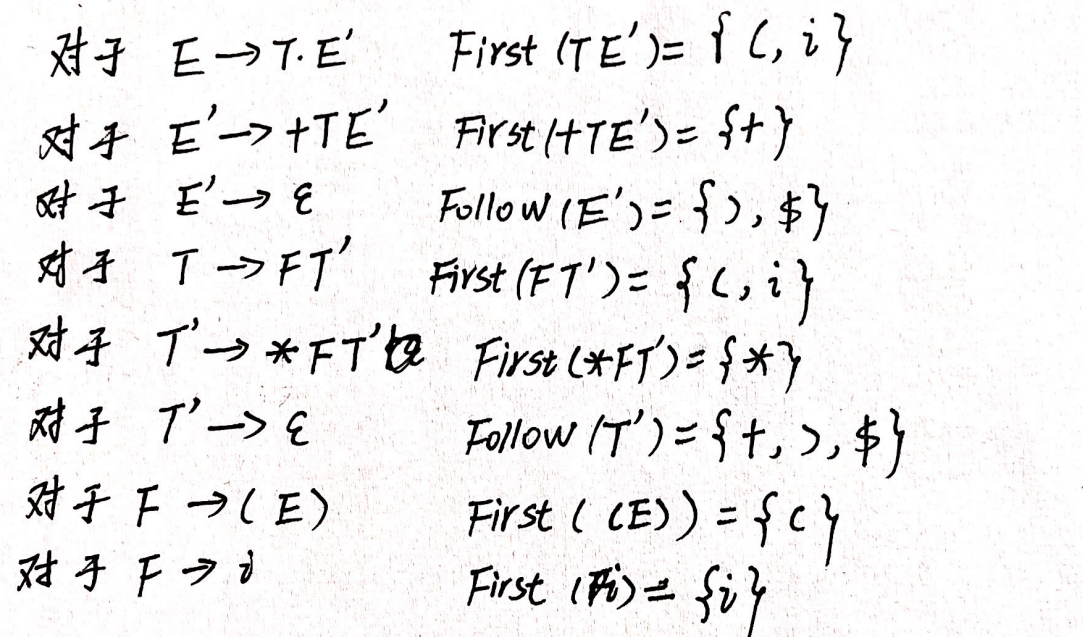 对于 E → T·E' First (TE') = { (, i }
对于 E' → +TE' First(+TE') = {+}
对于 E' → ε Follow (E') = { ), $}
对于 T → FT' First(FT') = { (, i}
对于 T' → *FT' First (*FT') = {*}
对于 T' → ε Follow (T') = {+, ), $}
对于 F → (E) First ( (E)) = { ( }
对于 F → i First (i) = {i}